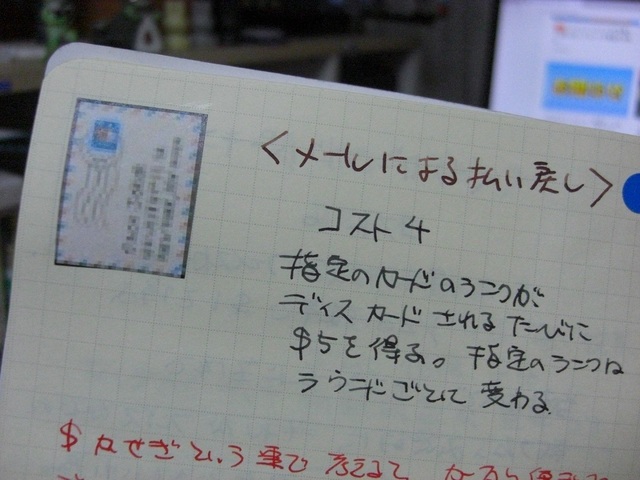 <メールによる払い戻し>
コスト4
指定のカードのランクが、
ディスカードされるたびに
$5を得る。指定のランクは
ラウンドごとに変わる
$かせぎという事で考えると